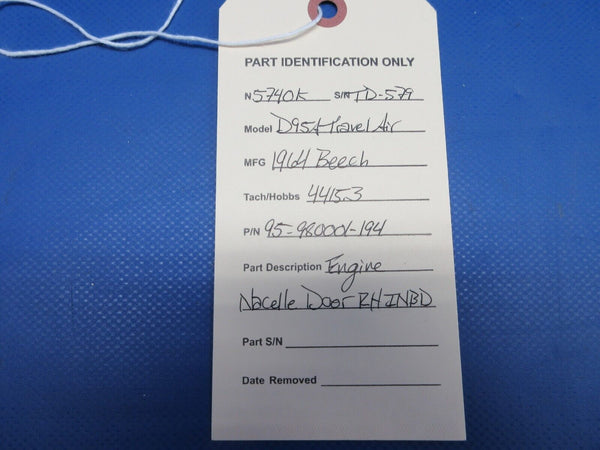 PART IDENTIFICATION ONLY
N 5740K S/N TD-579
Model D95A Travel Air
MFG 1964 Beech
Tach/Hobbs 4415.3
P/N 95-980001-194
Part Description Engine
Nacelle Door RH INBD
Part S/N
Date Removed